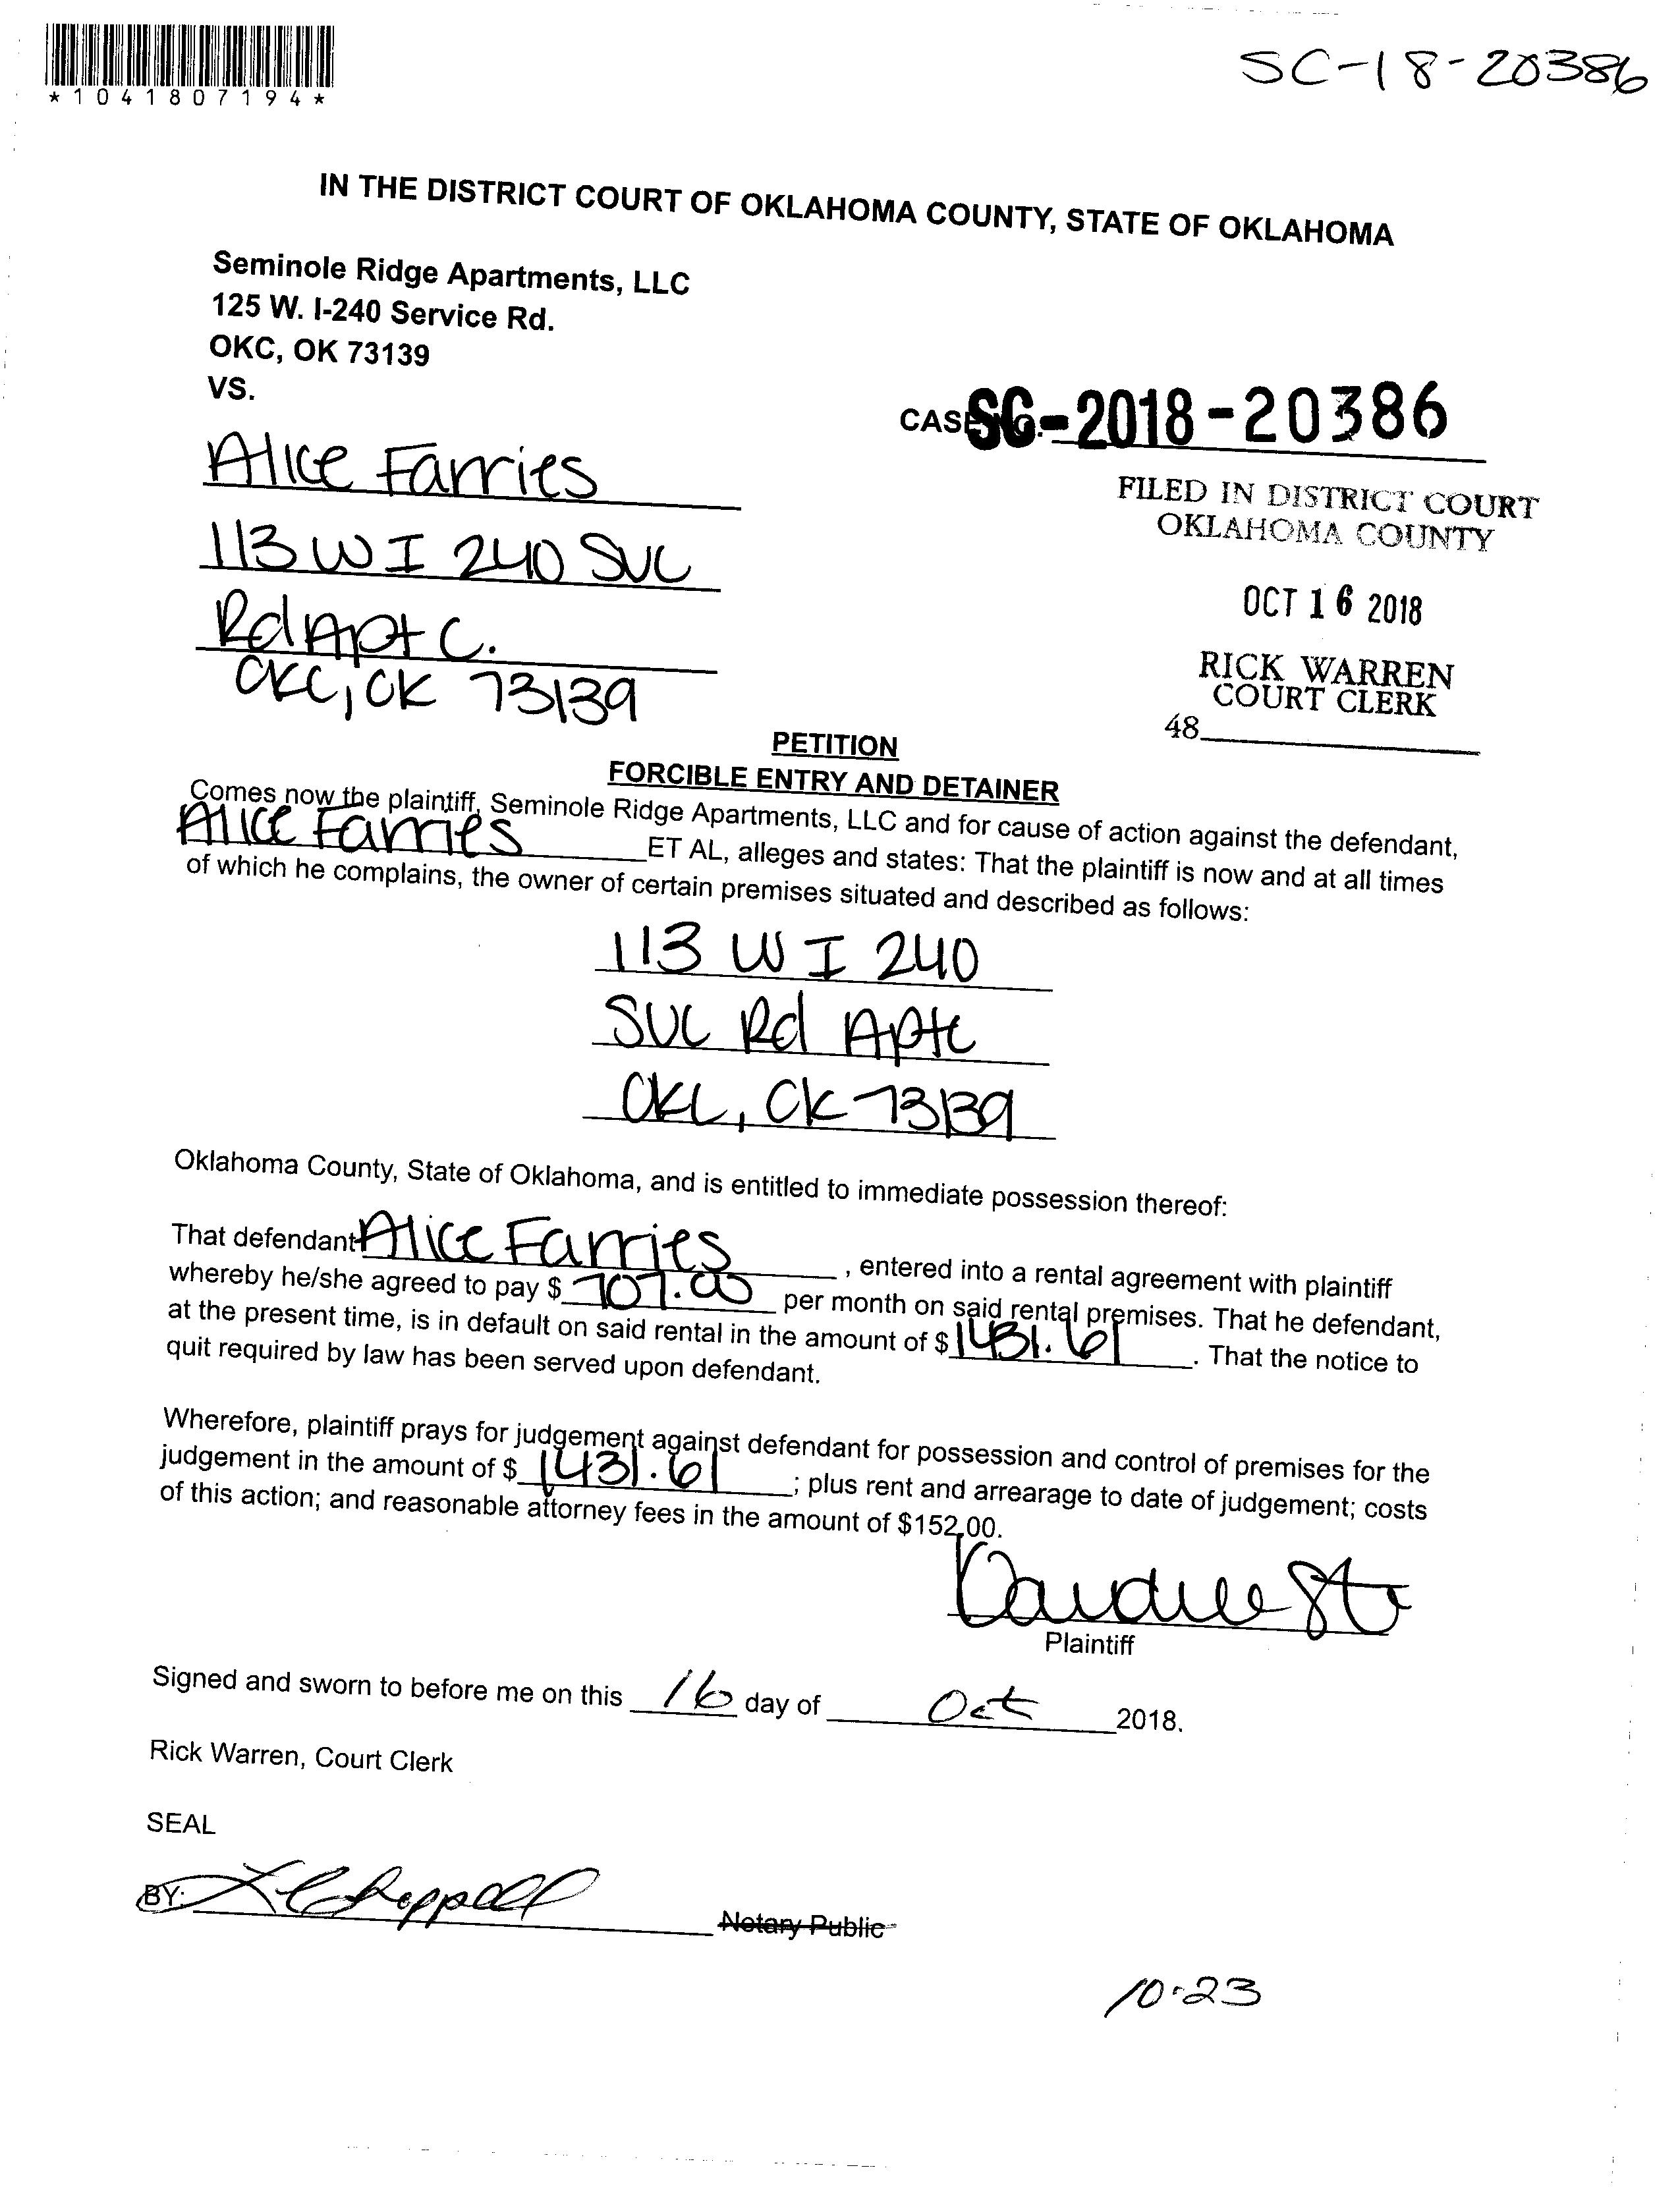 *1041807194*
SC-18-20386
IN THE DISTRICT COURT OF OKLAHOMA COUNTY, STATE OF OKLAHOMA
Seminole Ridge Apartments, LLC
125 W. I-240 Service Rd.
OKC, OK 73139
VS.
CASE SC-2018-20386
Alice Farries
113 W I 240 SVC
Rd Apt C.
OKC, OK 73139
FILED IN DISTRICT COURT
OKLAHOMA COUNTY
OCT 16 2018
RICK WARREN
COURT CLERK
48
PETITION
FORCIBLE ENTRY AND DETAINER
Comes now the plaintiff, Seminole Ridge Apartments, LLC and for cause of action against the defendant,
Alice Farries ET AL, alleges and states: That the plaintiff is now and at all times
of which he complains, the owner of certain premises situated and described as follows:
113 W I 240
SVC Rd Apt C
OKC, OK 73139
Oklahoma County, State of Oklahoma, and is entitled to immediate possession thereof:
That defendant Alice Farries, entered into a rental agreement with plaintiff
whereby he/she agreed to pay $ 707.00 per month on said rental premises. That he defendant,
at the present time, is in default on said rental in the amount of $ 1431.61. That the notice to
quit required by law has been served upon defendant.
Wherefore, plaintiff prays for judgement against defendant for possession and control of premises for the
judgement in the amount of $ 1431.61; plus rent and arrearage to date of judgement; costs
of this action; and reasonable attorney fees in the amount of $152.00.
Plaintiff
Signed and sworn to before me on this 16 day of Oct 2018.
Rick Warren, Court Clerk
SEAL
BY:
Notary Public
10-23